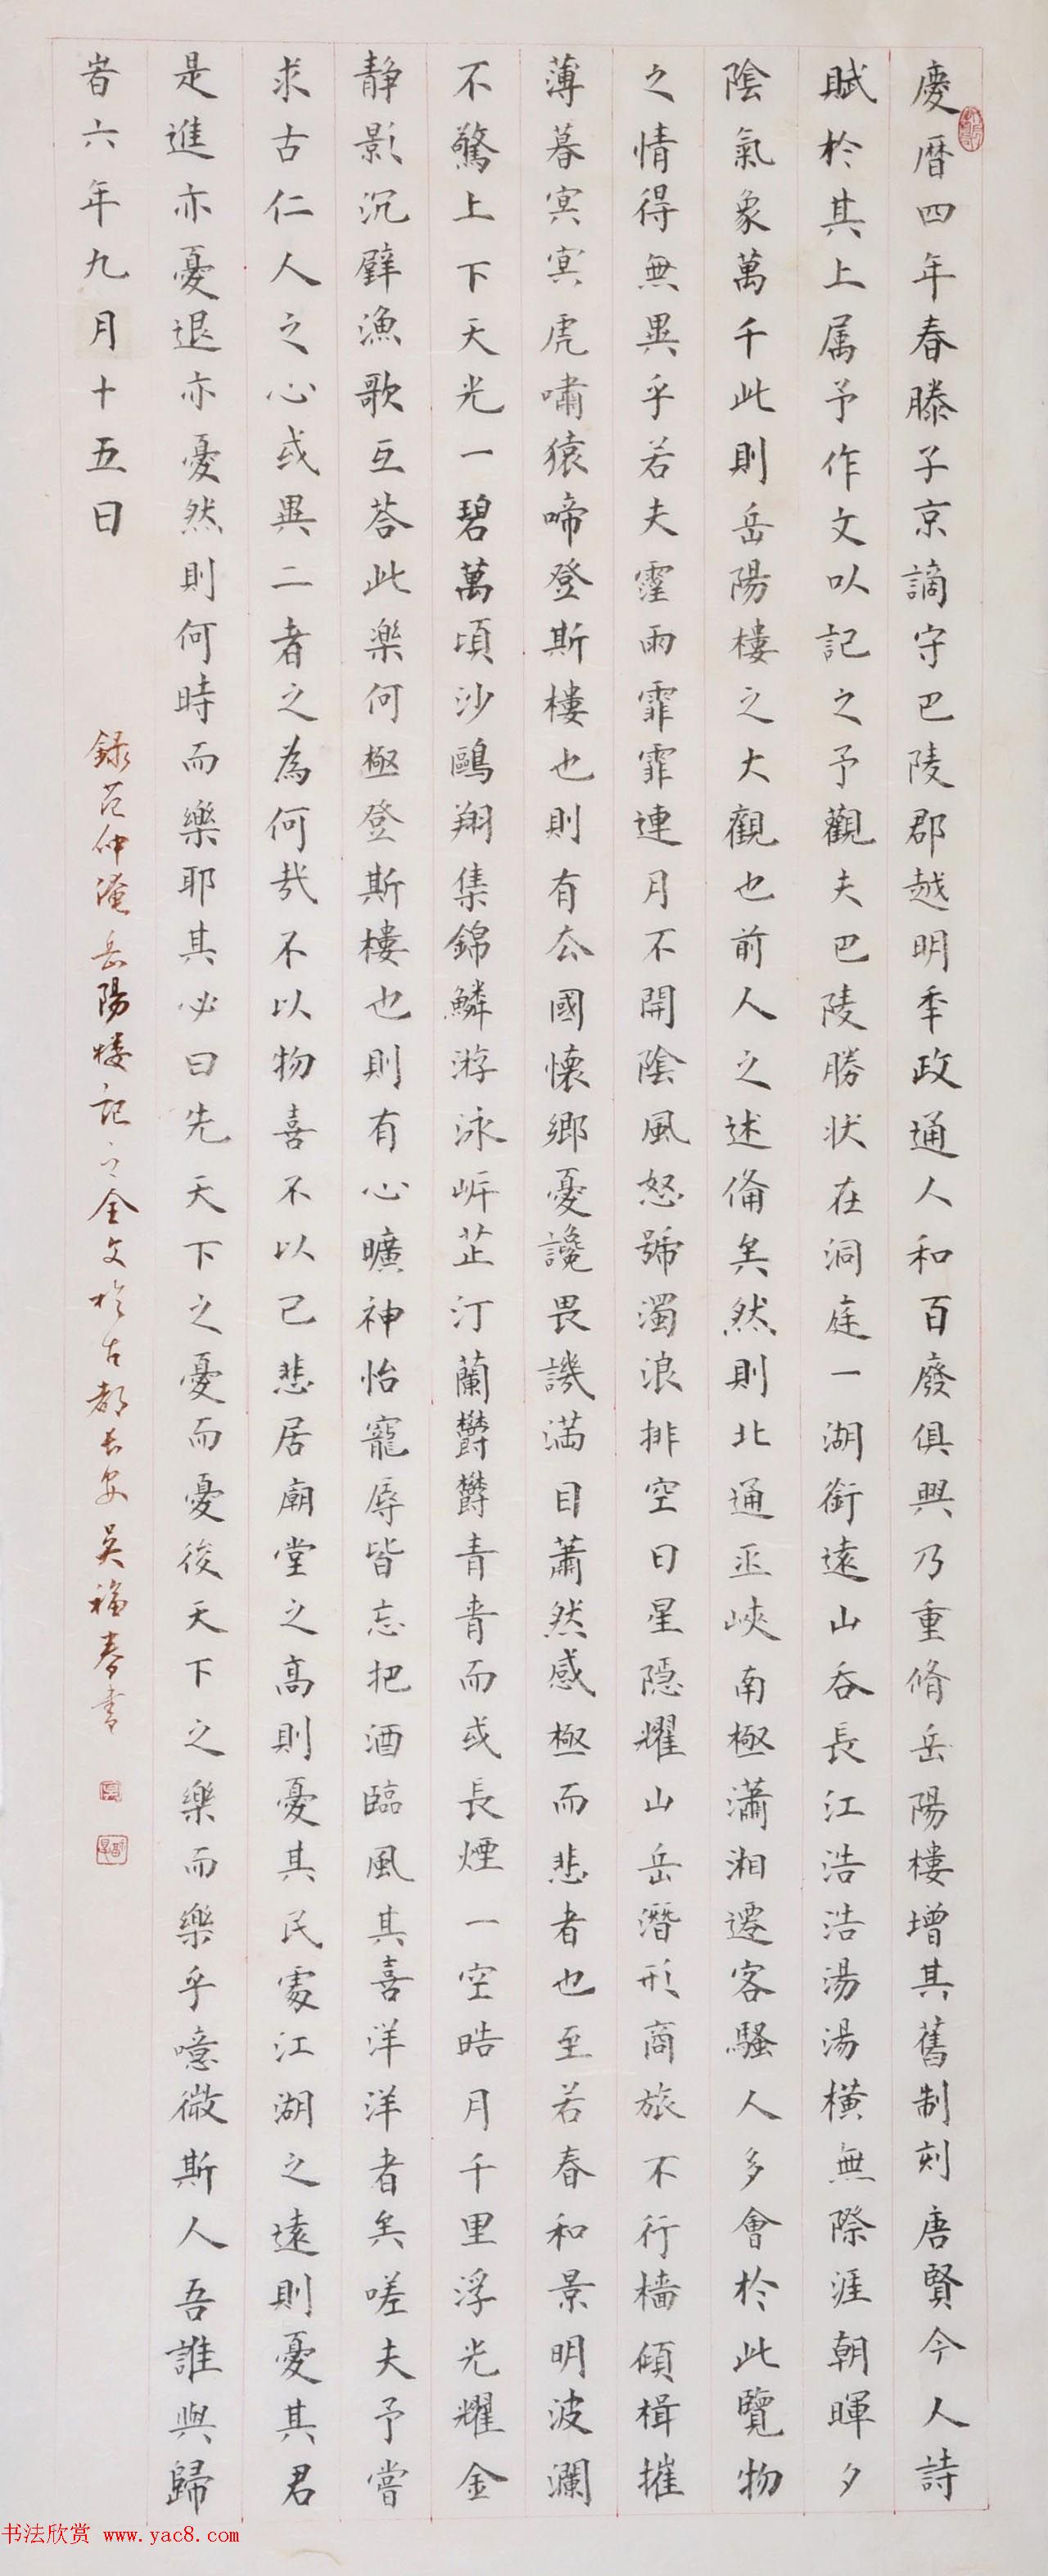 慶曆四年春滕子京謫守巴陵郡越明秊政通人和百廢俱興乃重脩岳陽樓增其舊制刻唐賢今人詩
賦於其上属予作文以記之予觀夫巴陵勝狀在洞庭一湖銜遠山吞長江浩浩湯湯橫無際涯朝暉夕
陰氣象萬千此則岳陽樓之大觀也前人之述俻矣然則北通巫峽南極瀟湘遷客騷人多會於此覽物
之情得無異乎若夫霪雨霏霏連月不開陰風怒號濁浪排空日星隱耀山岳潛形商旅不行檣傾楫摧
薄暮冥冥虎嘯猿啼登斯樓也則有去國懷鄉憂讒畏譏滿目蕭然感極而悲者也至若春和景明波瀾
不驚上下天光一碧萬頃沙鷗翔集錦鱗游泳岍芷汀蘭欝欝青青而或長煙一空皓月千里浮光耀金
靜影沉璧漁歌互荅此樂何極登斯樓也則有心曠神怡寵辱皆忘把酒臨風其喜洋洋者矣嗟夫予嘗
求古仁人之心或異二者之為何哉不以物喜不以己悲居廟堂之高則憂其民處江湖之遠則憂其君
是進亦憂退亦憂然則何時而樂耶其必曰先天下之憂而憂後天下之樂而樂乎噫微斯人吾誰與歸
旹六年九月十五日
録范仲淹岳陽楼記之全文於古都長安吴福春書
书法欣赏 www.yac8.com